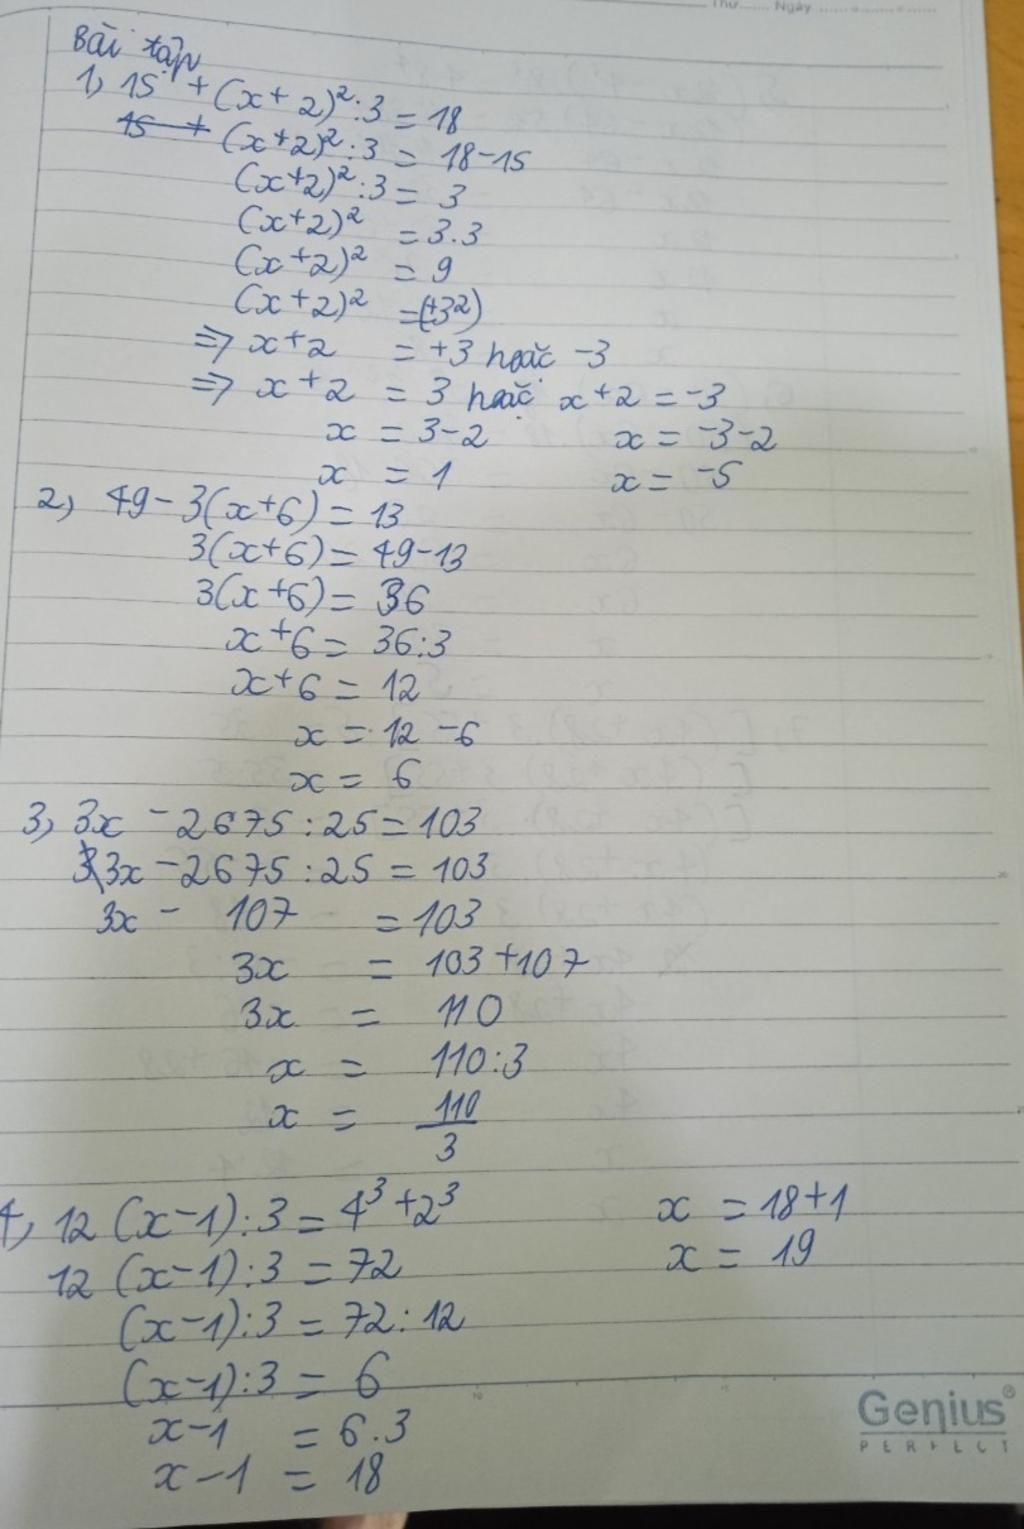 Thứ...... Ngày
Bài tập
1, 15 + (x + 2)² : 3 = 18
15 + (x+2)² : 3 = 18-15
(x+2)² : 3 = 3
(x+2)² = 3.3
(x+2)² = 9
(x+2)² = (±3²)
⇒ x+2 = +3 hoặc -3
⇒ x+2 = 3 hoặc x+2 = -3
x = 3-2 x = -3-2
x = 1 x = -5
2, 49-3(x+6) = 13
3(x+6) = 49-13
3(x+6) = 36
x+6 = 36:3
x+6 = 12
x = 12-6
x = 6
3, 3x - 2675 : 25 = 103
3x - 2675 : 25 = 103
3x - 107 = 103
3x = 103+107
3x = 110
x = 110:3
x = 110/3
4, 12 (x-1) : 3 = 4³ + 2³
12 (x-1) : 3 = 72
(x-1) : 3 = 72 : 12
(x-1) : 3 = 6
x-1 = 6.3
x-1 = 18
x = 18+1
x = 19
Genius®
PERFECT